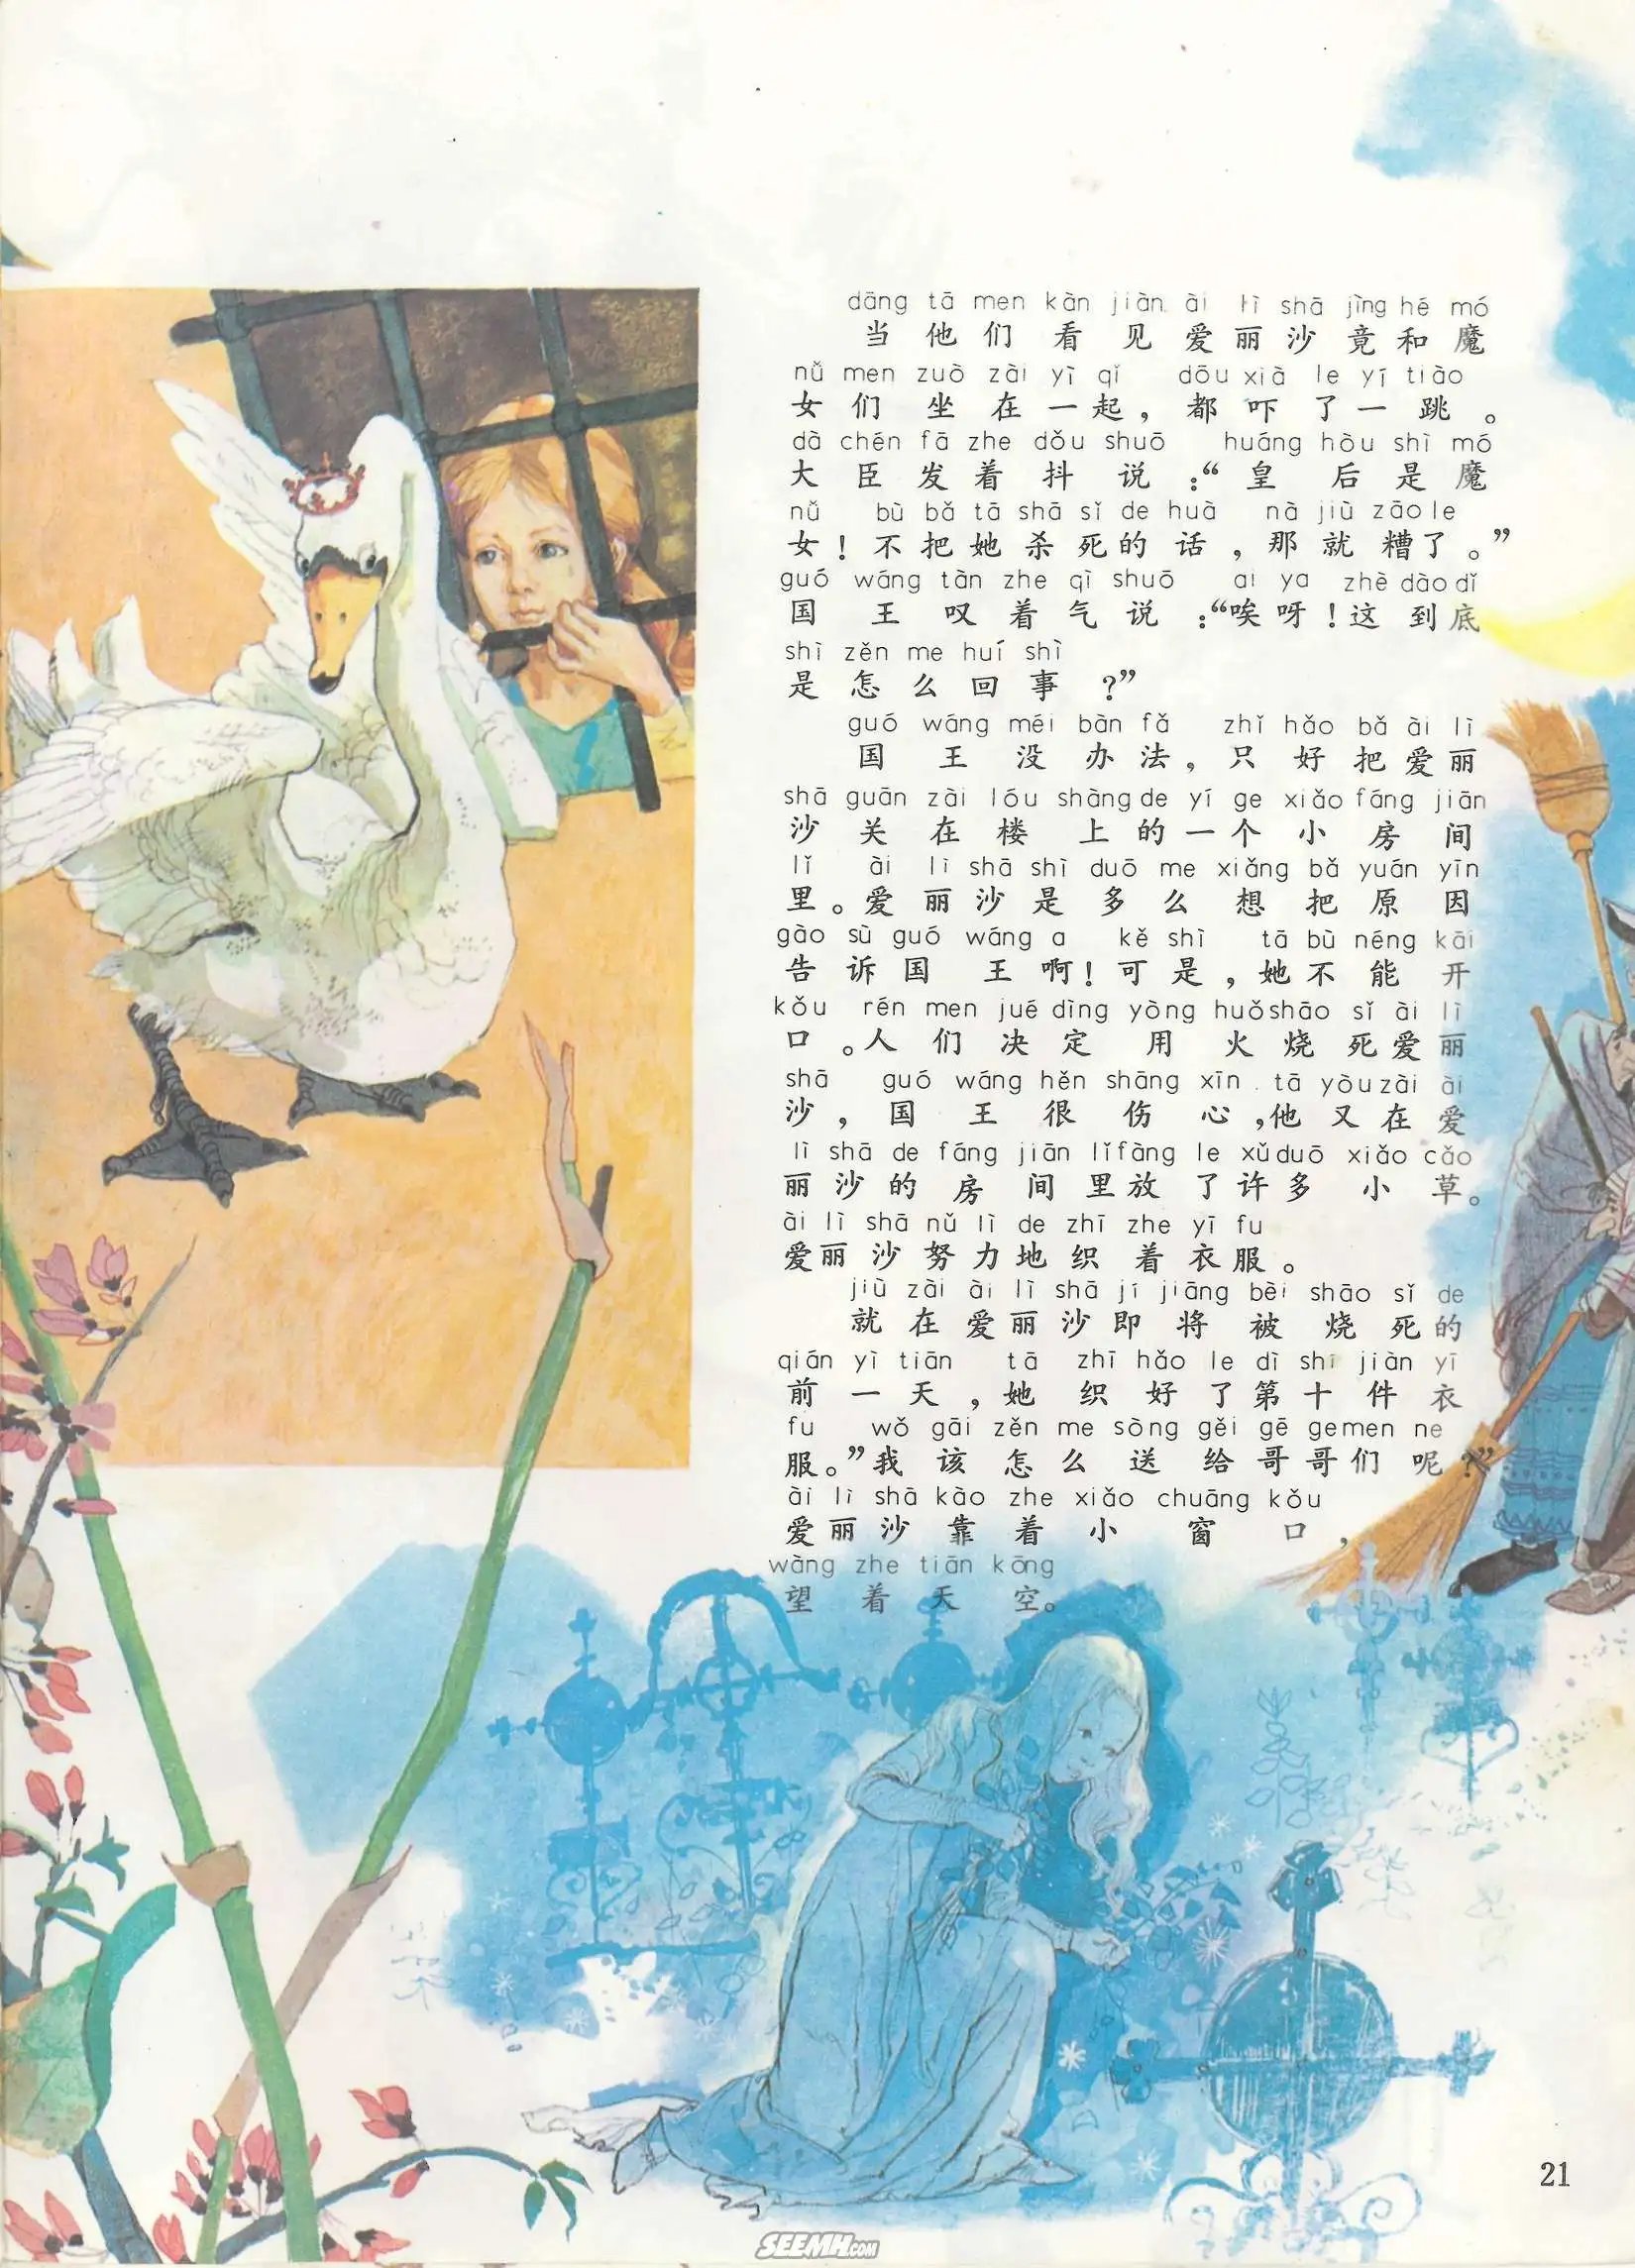 dāng tā men kàn jiàn ài lì shā jìng hé mó
当他们看见爱丽沙竟和魔
nǚ men zuò zài yì qǐ dōu xià le yī tiào
女们坐在一起，都吓了一跳。
dà chén fā zhe dǒu shuō huáng hòu shì mó
大臣发着抖说：“皇后是魔
nǚ bù bǎ tā shā sǐ de huà nà jiù zāo le
女！不把她杀死的话，那就糟了。”
guó wáng tàn zhe qì shuō ai ya zhè dào dǐ
国王叹着气说：“唉呀！这到底
shì zěn me huí shì
是怎么回事？”
guó wáng méi bàn fǎ zhǐ hǎo bǎ ài lì
国王没办法，只好把爱丽
shā guān zài lóu shàng de yí ge xiǎo fáng jiān
沙关在楼上的一个小房间
lǐ ài lì shā shì duō me xiǎng bǎ yuán yīn
里。爱丽沙是多么想把原因
gào sù guó wáng a kě shì tā bù néng kāi
告诉国王啊！可是，她不能开
kǒu rén men jué dìng yòng huǒ shāo sǐ ài lì
口。人们决定用火烧死爱丽
shā guó wáng hěn shāng xīn tā yòu zài ài
沙，国王很伤心，他又在爱
lì shā de fáng jiān lǐ fàng le xǔ duō xiǎo cǎo
丽沙的房间里放了许多小草。
ài lì shā nǔ lì de zhī zhe yī fu
爱丽沙努力地织着衣服。
jiù zài ài lì shā jí jiāng bèi shāo sǐ de
就在爱丽沙即将被烧死的
qián yì tiān tā zhī hǎo le dì shí jiàn yī
前一天，她织好了第十件衣
fu wǒ gāi zěn me sòng gěi gē ge men ne
服。”我该怎么送给哥哥们呢？”
ài lì shā kào zhe xiǎo chuāng kǒu
爱丽沙靠着小窗口，
wàng zhe tiān kōng
望着天空。
21
SEEMH.COM